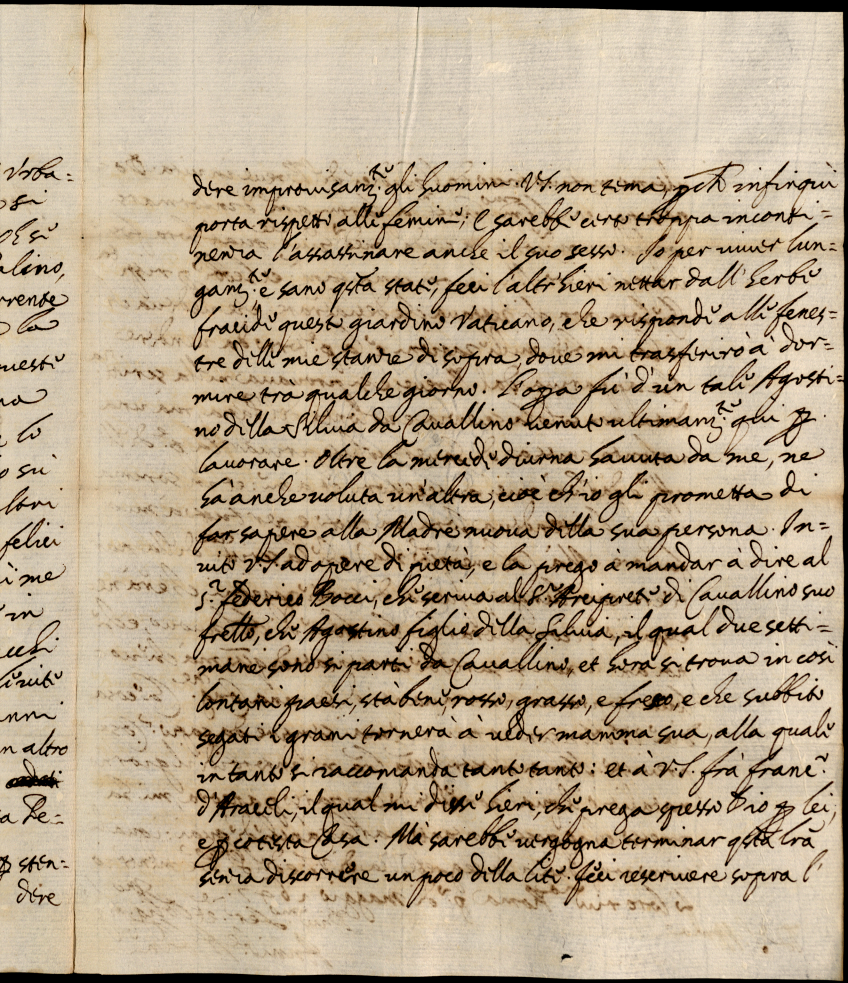 Vrba=
si
alino,
la
lo
sù
felici
ï me
in
anni
n altro
a Pe=
sten=
dere
dere improuisam.te gli huomini. V.S. non tema, p̱ch' infin quì
porta rispetto alle femine; e sarebbe certo troppa inconti=
nenza l'assassinare anche il suo sesso. Io per uiuer lun=
gam.te e sano q̃sta state, feci l'altr'hieri nettar dall'herbe
fracide questo giardino Vaticano, che risponde alle fenes=
tre delle mie stanze di sopra, doue mi trasferirò à dor=
mire trà qualche giorno. L'opa fù d'un tale Agosti=
no della Siluia da Cauallino uenuto ultimam.te quì p̱
lauorare. Oltre la mercede diurna hauuta da me, ne
hà anche uoluta un'altra, cioè ch'io gli prometta di
far sapere alla Madre nuoua della sua persona. In=
uito V.S. ad opere di pietà, e la prego à mandar à dire al
S.r Federico Bocci, che scriua al S.r Arciprete di Cauallino suo
frello, che Agostino figlio della Siluia, il qual due setti=
mane sono si partì da Cauallino, et hora si troua in così
lontani paesi, stà bene, rosso, grasso, e fresco, e che subbito
segati i grani tornerà à ueder mamma sua, alla quale
intanto si raccomanda tanto tanto: et à V.S. frà Franc.o
d'Araceli, il qual mi disse hieri, che prega spesso Dio p̱ lei,
e p̱ cotesta Casa. Mà sarebbe uergogna terminar q̃sta lr̃a
senza discorrere un poco della lite. Feci rescriuere sopra l'